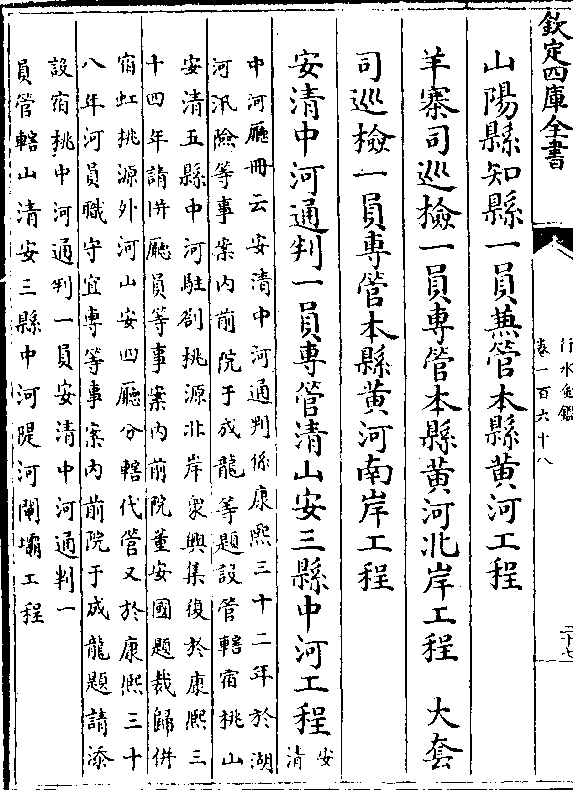 欽定四庫全書
行水金鑑
卷一百六十八
二十七
山陽縣知縣一員兼管本縣黃河工程
羊寨司巡檢一員專管本縣黃河北岸工程　大套
司巡檢一員專管本縣黃河南岸工程
安清中河通判一員專管清山安三縣中河工程
安清
中河廳冊云安清中河通判係康熙三十二年於湖
河汛險等事案內前院于成龍等題設管轄宿桃山
安清五縣中河駐劄桃源北岸衆興集復於康熙三
十四年請併廳員等事案內前院董安國題裁歸併
宿虹桃源外河山安四廳分轄代管又於康熙三十
八年河員職守宜專等事案內前院于成龍題請添
設宿桃中河通判一員安清中河通判一
員管轄山清安三縣中河隄河閘壩工程